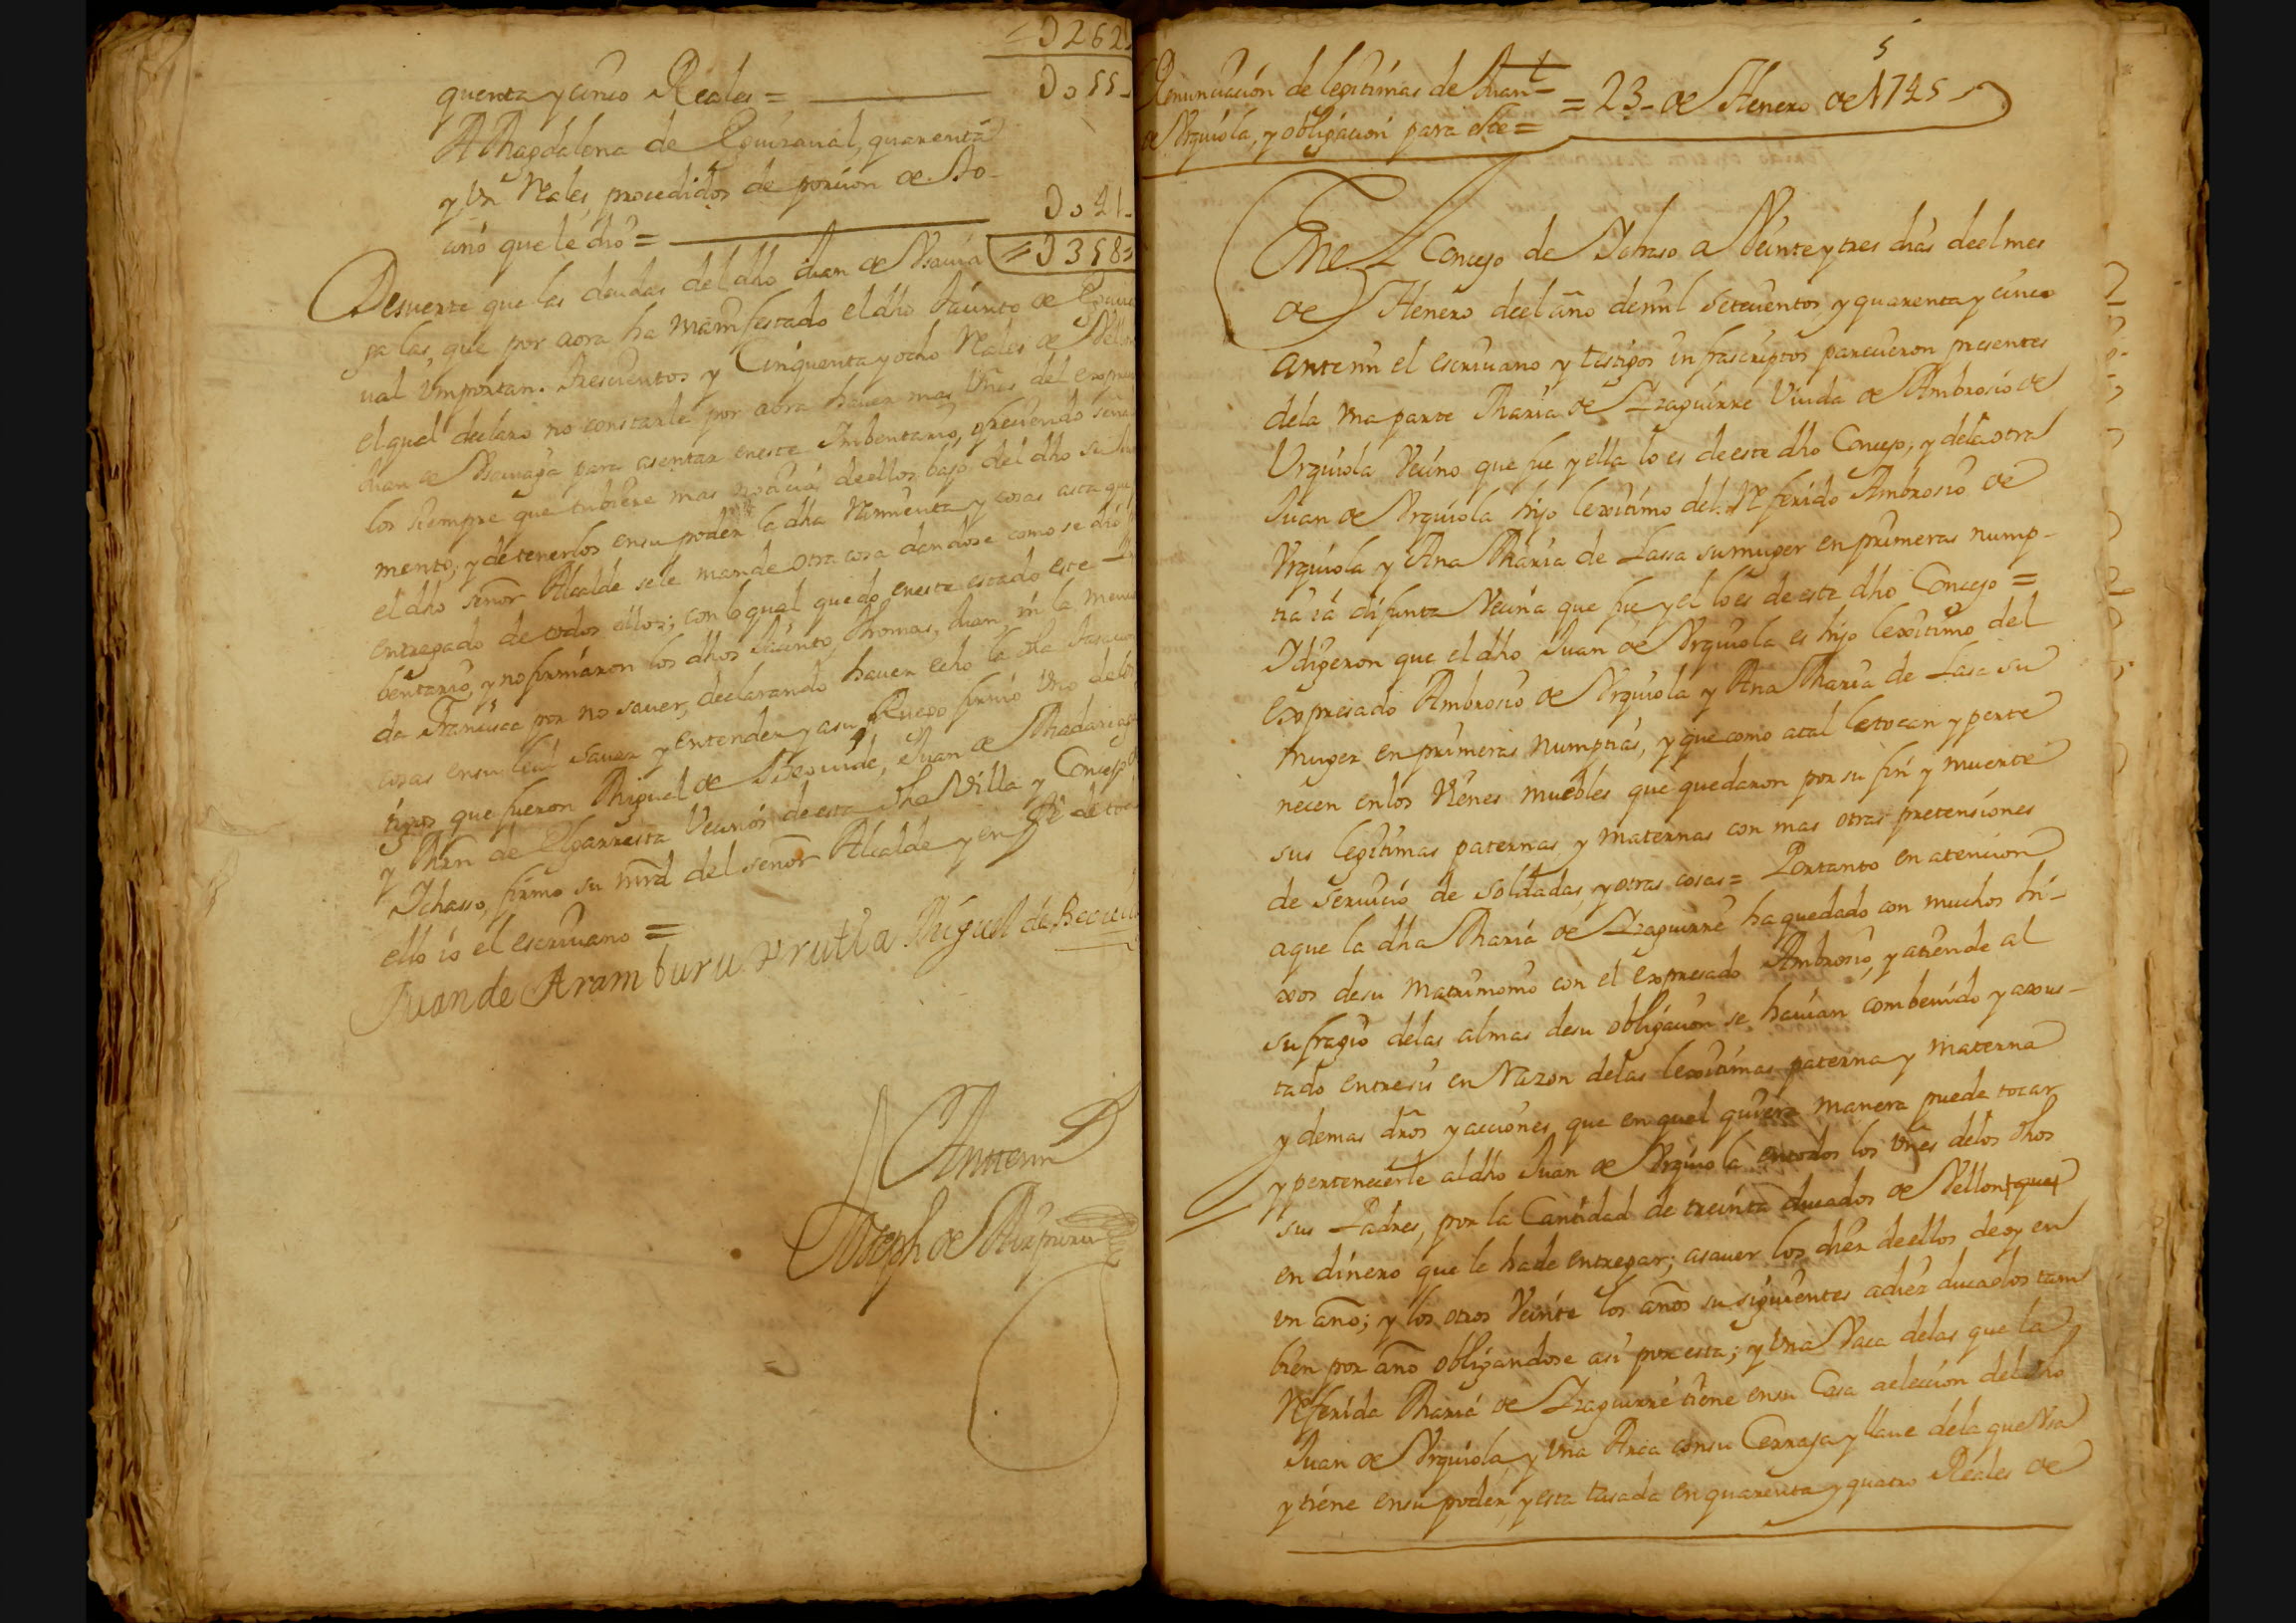 =D262=
quenta y cinco Reales = D055-
A Magdalena de Equizaual, quarenta
y Un Reales procedidos de porcion de
que le dio = D041-
=D358=
De suerte que las deudas del dho Juan de
que por aora ha manifestado el dho Jacinto de
importan. Trescientos y Cinquenta y ocho Reales de
el qual declaro no constarle por aora hauer mas Vnes del
Juan de para asentar en este Imbentario, ofreciendo
los siempre que tubiere mas noticia de ellos bajo del dho su
mento, y de tenerlos en su poder la dha y cosas asta que
el dho señor Alcalde se le mande otra cosa dandose como se dio
entregado de todos ellos; con lo qual quedo en este estado este
bentario, y no firmaron los dhos Jacinto, Thomas, Juan, ni la
da Francisca por no sauer, declarando hauer echo la dha
cosas en su leal sauer y entender y a su Ruego firmo Vno de los
tigos que fueron Miguel de Beovide, Juan de Madariaga
y de Vecinos de esta dha Villa y Concejo
Ichasso, firmo su mrd del señor Alcalde y en fe de
ello io el escriuano =
Juan de Aramburu Vrrutia Miguel de
Antemi
Joseph de
5
Renunciación de legitimas de Juan
de Vrquiola, y obligacion para = 23- de Henero de 1745
En el Concejo de Ichaso a Veinte y tres dias de el mes
de Henero de el año de mil setecientos y quarenta y cinco
antemi el escriuano y testigos infrascriptos parecieron presentes
de la vna parte Maria de Yzaguirre Viuda de Ambrosio de
Urquiola Vecino que fue y ella lo es de este dho Concejo; y de la otra
Juan de Vrquiola hijo lexitimo del Referido Ambrosio de
Vrquiola y Ana Maria de Lassa su muger en primeras nump-
tia ia difunta Vecina que fue y el lo es de este dho Concejo =
I digeron que el dho Juan de Vrquiola es hijo lexitimo del
expresado Ambrosio de Vrquiola y Ana Maria de Lasa su
muger en primeras numptias, y que como a tal le tocan y perte
necen en los Vienes muebles que quedaron por su fin y muerte
sus legitimas paternas y maternas con mas otras pretensiones
de seruicio de soldadas, y otras cosas = Portanto en atencion
a que la dha Maria de Yzaguirre ha quedado con muchos hi-
xos de su matrimonio con el expresado Ambrosio, y atiende al
sufragio de las almas de su obligacion se hauian combenido y axus-
tado entre si en Razon de las lexitimas paterna y materna
y demas dros y acciones que en qual quiera manera puede tocar
y pertenecerle al dho Juan de Vrquiola en todos los Vnes de los dhos
sus Padres, por la Cantidad de treinta ducados de Vellon que
en dinero que le ha de entregar; a sauer los diez de ellos de oy en
vn año; y los otros Veinte los años su siguientes a diez ducados tam
bien por año obligandose asi por esta; y vna Vaca de las que la
Referida Maria de Yzaguirre tiene en su Casa a eleccion del dho
Juan de Vrquiola y vna Arca con su Cerraja y llaue de la que Vsa
y tiene en su poder, y esta tasada en quarenta y quatro Reales de